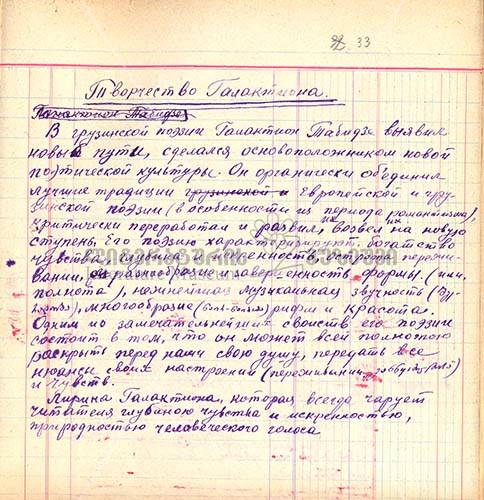 33
Творчество Галактиона.
Галактион Табидзе
В грузинской поэзии Галактион Табидзе выявил
новый путь, сделался основоположником новой
поэтической культуры. Он органически объединил
лучшие традиции грузинской и Европейской и гру-
зинской поэзии (в особенности из периода романтизма),
критически переработал и развил, их возвел на новую
ступень. Его поэзию характеризируют богатство
чувства, глубина, острота пережи-
вании, разнообразие, завершенность формы, (или
полнота), нежнейшая музыкальная звучность
многообразие рифм и красота.
Одним из замечательнейших свойств его поэзии
состоит в том, что он может всей полнотою
раскрыть перед нами свою душу, передать все
нюансы своих настроении (переживании
и чувств.
Лирина Галактиона, которая всегда чарует
читателя глубиною чувства и искренностью,
природностью человеческого голоса